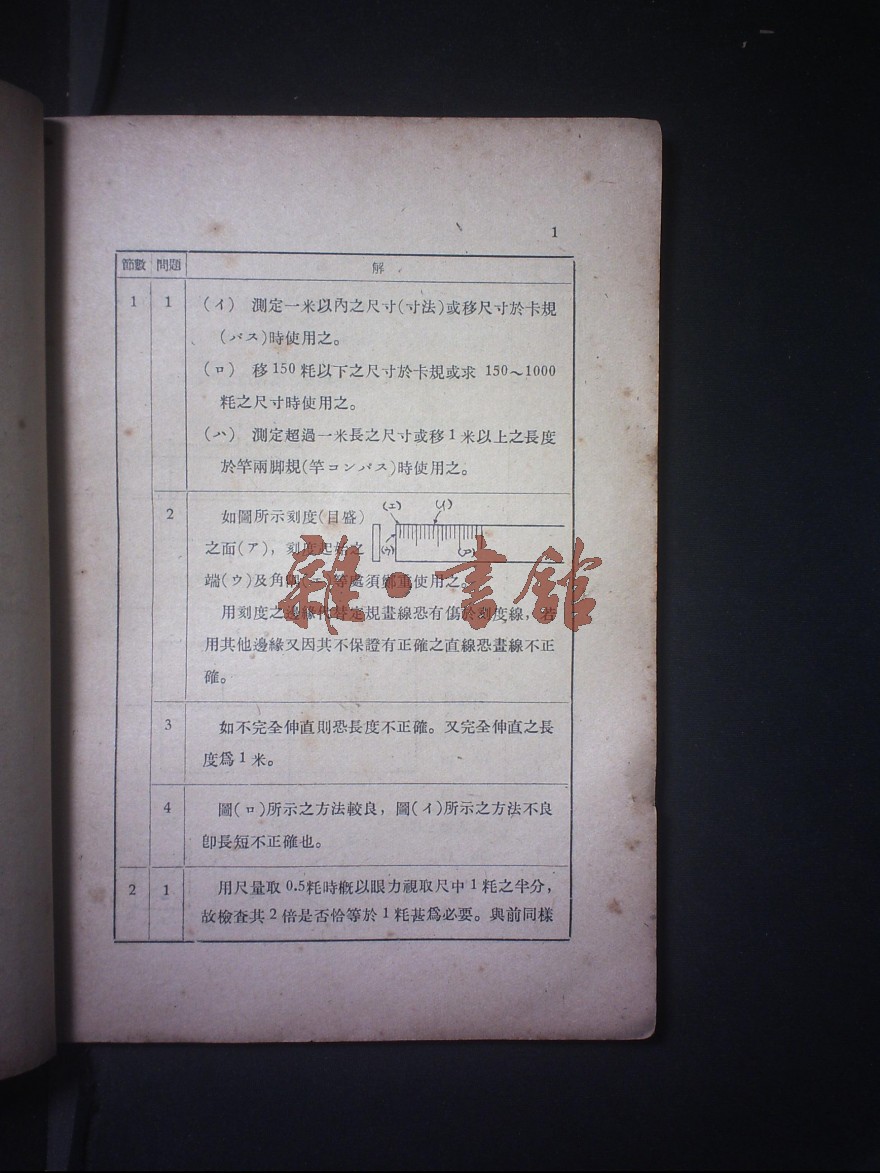 1
節數 問題 解
1 1 (イ) 測定一米以內之尺寸(寸法)或移尺寸於卡規
(パス)時使用之。
(ロ) 移150粍以下之尺寸於卡規或求 150～1000
粍之尺寸時使用之。
(ハ) 測定超過一米長之尺寸或移1米以上之長度
於竿兩脚規(竿コンパス)時使用之。
2 如圖所示刻度(目盛)
(エ) (イ)
之面(ア)，刻度起始之
(ウ) (ロ)
端(ウ)及角隅(エ)等處須鄭重使用之。
用刻度之邊緣代替定規畫線恐有傷於刻度線，若
用其他邊緣又因其不保證有正確之直線恐畫線不正
確。
3 如不完全伸直則恐長度不正確。又完全伸直之長
度爲1米。
4 圖(ロ)所示之方法較良，圖(イ)所示之方法不良
卽長短不正確也。
2 1 用尺量取0.5粍時槪以眼力視取尺中1粍之半分，
故檢查其2倍是否恰等於1粍甚爲必要。與前同樣
雜·書館